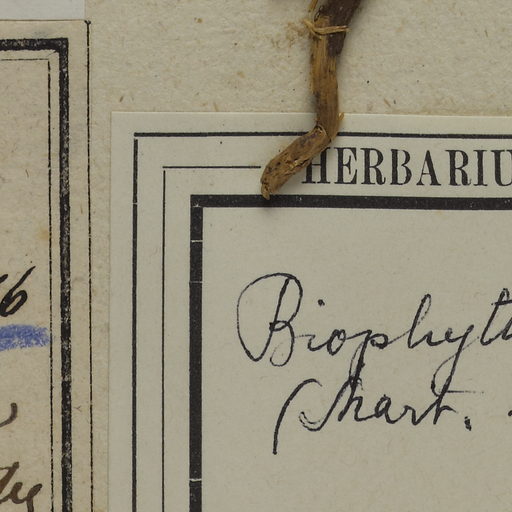 HERBARIU
Biophyt
(Mart.
6